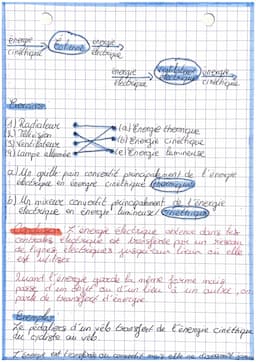 énergie cinétique Eolienne énergie électrique
énergie électrique Ventilateur électrique énergie cinétique
Exercice
1) Radiateur (a) Energie thermique
2) Télévision (b) Energie cinétique
3) Ventilateur (c) Energie lumineuse
4) lampe allumée
a) Un grille pain convertit principalement de l'énergie
électrique en énergie cinétique thermique
b) Un mixeur convertit principalement de l'énergie
électrique en énergie lumineuse cinétique
L'énergie électrique obtenue dans les
centrales électrique est transférée par un réseau
de lignes électriques jusqu'aux lieux ou elle
est utilisée
Quand l'énergie garde la même forme mais
passe d'un objet ou d'un lieu à un autre, on
parle de transfert d'énergie.
Exemple
Le pédaliers d'un vélo transfert de l'énergie cinétique
du cycliste au vélo.
L'énergie est transférée ou convertit mais elle ne disparait